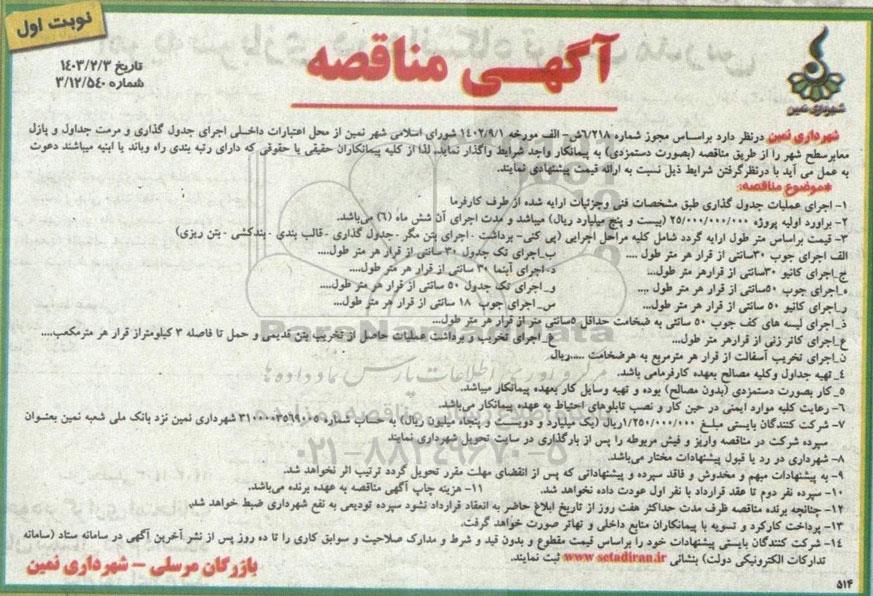 نوبت اول
آگهی مناقصه
تاریخ ۱۴۰۳/۲/۳
شماره ۳/۱۲/۵۴۰
شهرداری نمین
شهرداری نمین درنظر دارد براساس مجوز شماره ۶/۲۱۸ش- الف مورخه ۱۴۰۲/۹/۱ شورای اسلامی شهر نمین از محل اعتبارات داخلی اجرای جدول گذاری و مرمت جداول و پازل
معابرسطح شهر را از طریق مناقصه (بصورت دستمزدی) به پیمانکار واجد شرایط واگذار نماید. لذا از کلیه پیمانکاران حقیقی یا حقوقی که دارای رتبه بندی راه وباند یا ابنیه میباشند دعوت
به عمل می آید با درنظرگرفتن شرایط ذیل نسبت به ارائه قیمت پیشنهادی نمایند.
*موضوع مناقصه:
۱- اجرای عملیات جدول گذاری طبق مشخصات فنی وجزئیات ارایه شده از طرف کارفرما
۲- براورد اولیه پروژه ۲۵/۰۰۰/۰۰۰/۰۰۰ (بیست و پنج میلیارد ریال) میباشد و مدت اجرای آن شش ماه (۶) می‌باشد.
۳- قیمت براساس متر طول ارایه گردد شامل کلیه مراحل اجرایی (پی کنی- برداشت - اجرای بتن مگر - جدول گذاری - قالب بندی - بندکشی - بتن ریزی)
الف اجرای جوب ۳۰سانتی از قرار هر متر طول .... ب_اجرای تک جدول ۳۰ سانتی از قرار هر متر طول....
ج_اجرای کانیو ۳۰سانتی از قرارهر متر طول... د-اجرای آبنما ۳۰ سانتی از قرار هر متر طول....
ه_اجرای جوب ۵۰سانتی از قرار هر متر طول .... و_اجرای تک جدول ۵۰ سانتی از قرار هر متر طول....
ر_اجرای کانیو ۵۰ سانتی از قرار هر متر طول... س_اجرای جوب ۱۸ سانتی از قرار هر متر طول....
ذ_اجرای لیسه های کف جوب ۵۰ سانتی به ضخامت حداقل ۵سانتی متر از قرار هر متر طول...
ع_اجرای کاتر زنی از قرارهر متر طول... غ_اجرای تخریب و برداشت عملیات حاصل از تخریب بتن قدیمی و حمل تا فاصله ۳ کیلومتراز قرار هر مترمکعب....
ن_اجرای تخریب آسفالت از قرار هر مترمربع به هرضخامت .....ریال
۴_ تهیه جداول وکلیه مصالح بعهده کارفرمامی باشد.
۵_ کار بصورت دستمزدی (بدون مصالح) بوده و تهیه وسایل کار بعهده پیمانکار میباشد.
۶- رعایت کلیه موارد ایمنی در حین کار و نصب تابلوهای احتیاط به عهده پیمانکار می‌باشد.
۷- شرکت کنندگان بایستی مبلغ ۱/۲۵۰/۰۰۰/۰۰۰ریال (یک میلیارد و دویست و پنجاه میلیون ریال) به حساب شماره ۳۱۰۰۰۰۳۵۶۹۰۰۵ شهرداری نمین نزد بانک ملی شعبه نمین بعنوان
سپرده شرکت در مناقصه واریز و فیش مربوطه را پس از بارگذاری در سایت تحویل شهرداری نمایند
۸- شهرداری در رد یا قبول پیشنهادات مختار می‌باشد.
۹- به پیشنهادات مبهم و مخدوش و فاقد سپرده و پیشنهاداتی که پس از انقضای مهلت مقرر تحویل گردد ترتیب اثر نخواهد شد.
۱۰- سپرده نفر دوم تا عقد قرارداد با نفر اول عودت داده نخواهد شد. ۱۱- هزینه چاپ آگهی مناقصه به عهده برنده می‌باشد.
۱۲- چنانچه برنده مناقصه ظرف مدت حداکثر هفت روز از تاریخ ابلاغ حاضر به انعقاد قرارداد نشود سپرده تودیعی به نفع شهرداری ضبط خواهد شد.
۱۳- پرداخت کارکرد و تسویه با پیمانکاران منابع داخلی و تهاتر صورت خواهد گرفت.
۱۴- شرکت کنندگان بایستی پیشنهادات خود را براساس قیمت مقطوع و بدون قید و شرط و مدارک صلاحیت و سوابق کاری را تا ده روز پس از نشر آخرین آگهی در سامانه ستاد (سامانه
تدارکات الکترونیکی دولت) بنشانی www.setadiran.ir ثبت نمایند.
بازرگان مرسلی - شهرداری نمین
۵۱۴
ParsNamadData
مرکز آوری اطلاعات پارس نماد داده ها
۰۲۱-۸۸۳۴۹۶۷۰-۵